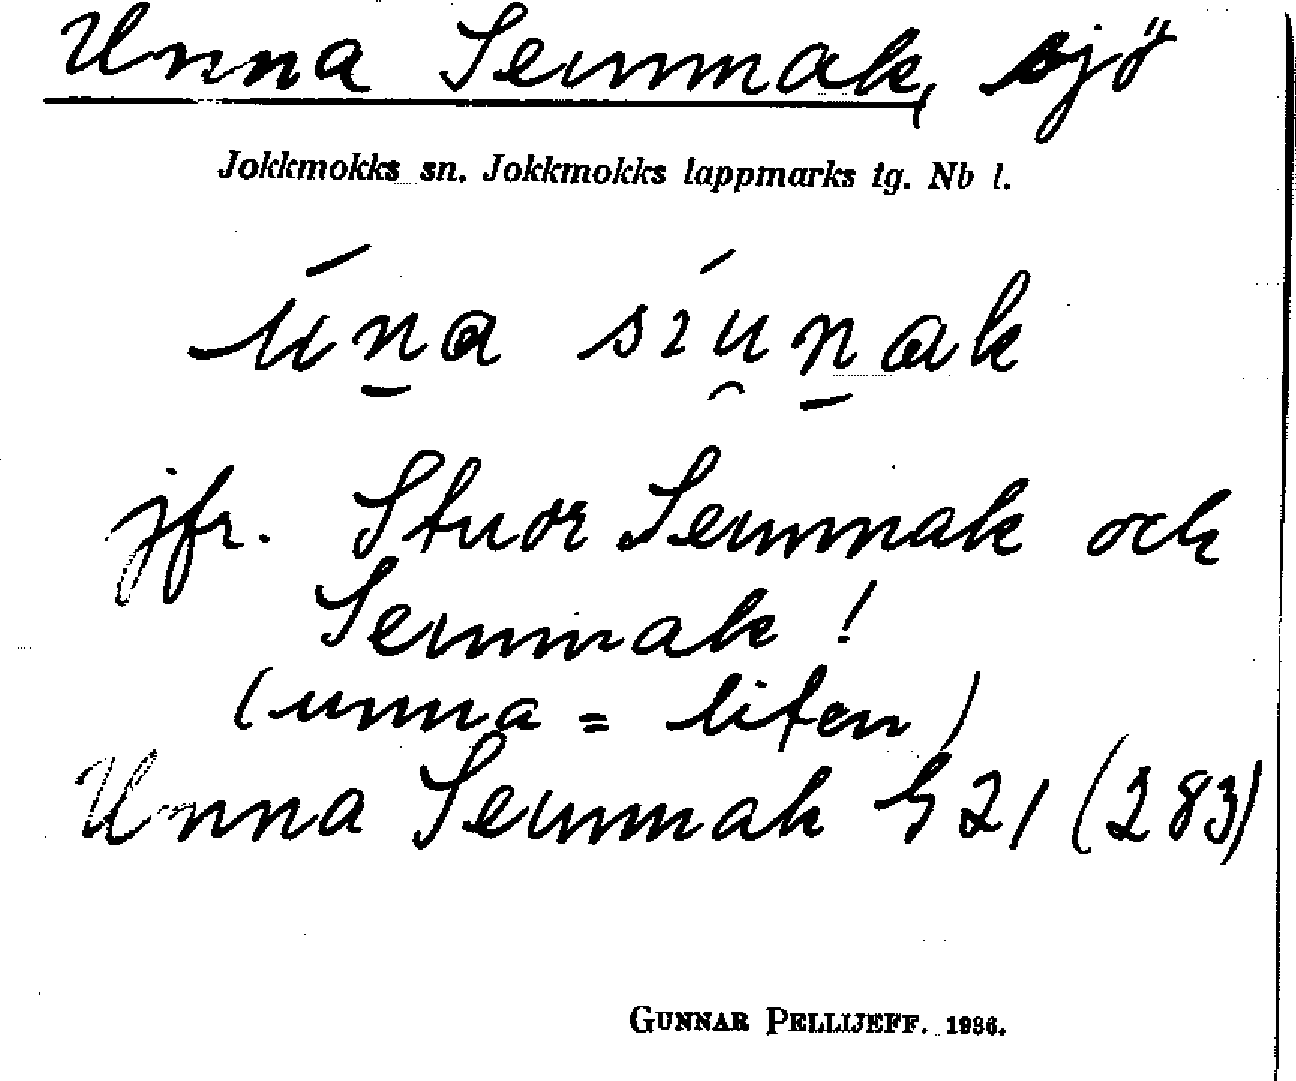 Unna Seunnak, sjö
Jokkmokks sn. Jokkmokks lappmarks tg. Nb l.
jfr. Stuor Seunnak och
Seunnak!
(unna = liten)
Unna Seunnak h 21 (283)
GUNNAR PELLIJEFF. 1936.